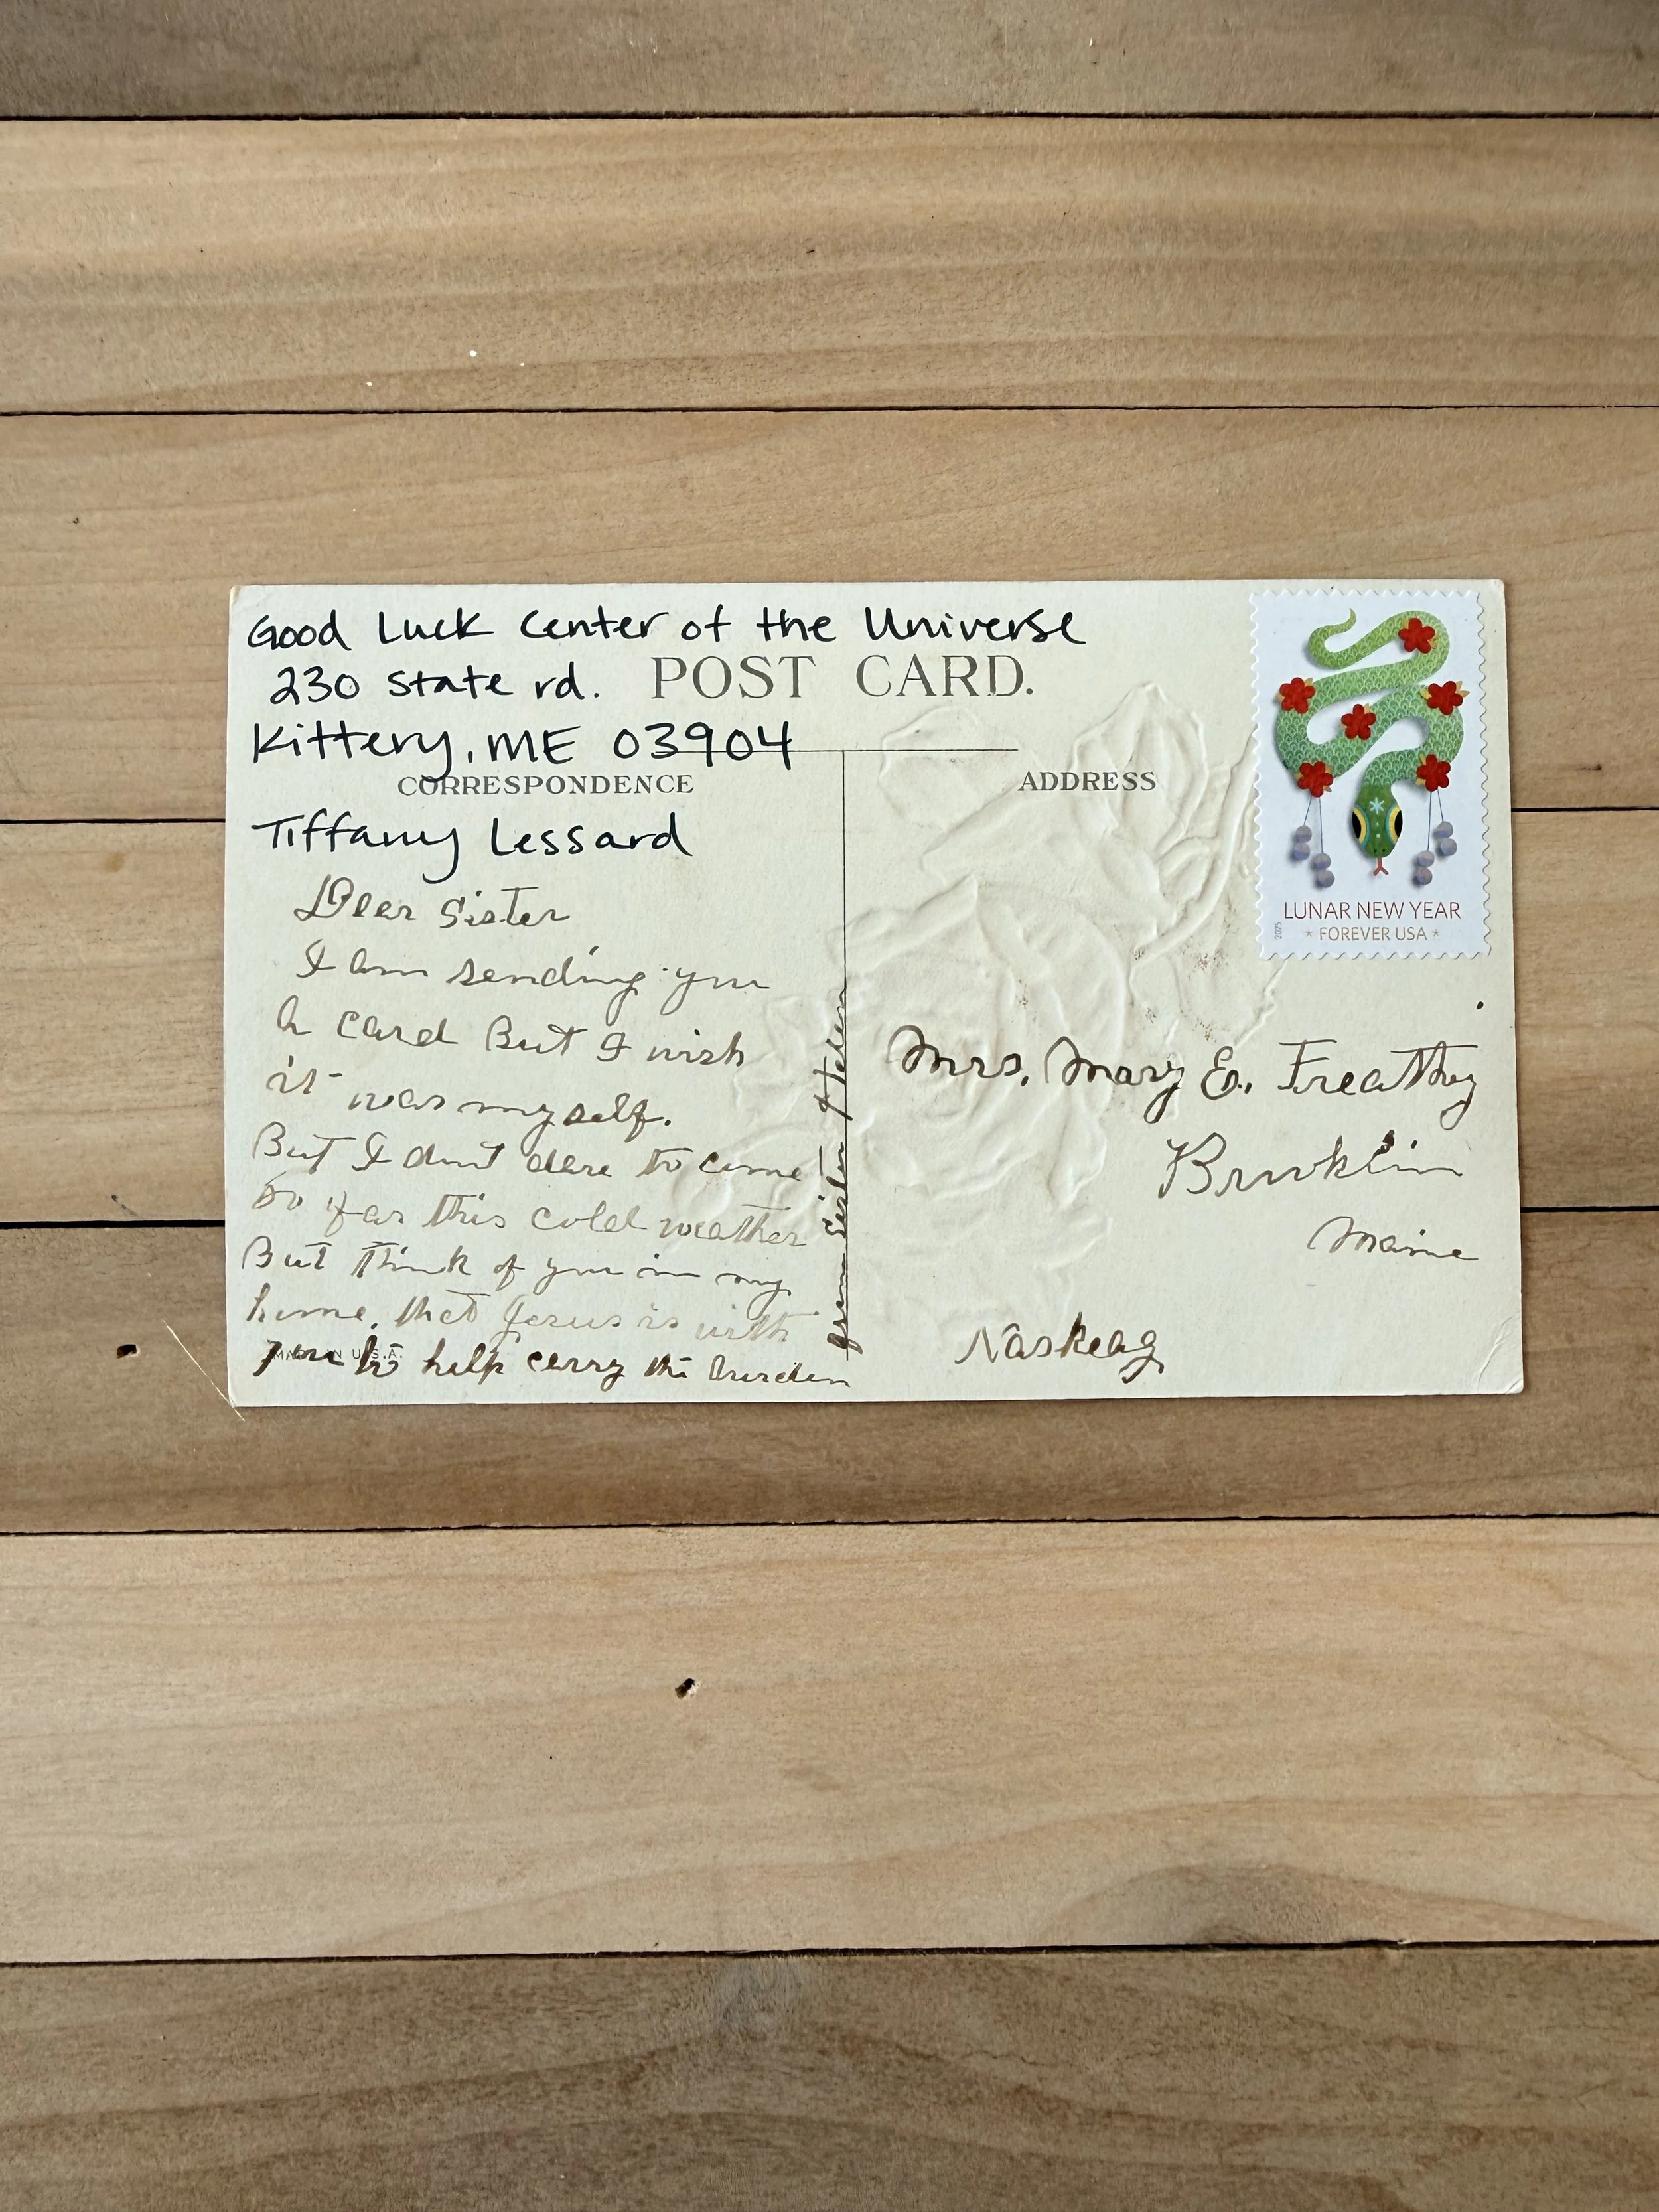 Good Luck Center of the Universe
230 State rd.
POST CARD.
Kittery, ME 03904
CORRESPONDENCE
ADDRESS
Tiffany Lessard
Dear Sister
I am sending you
a card But I wish
it was myself.
But I dont dare to come
so far this cold weather
But think of you in my
home, that Jesus is with
you to help carry the burden
MADE IN U.S.A.
from Sister Helen
LUNAR NEW YEAR
FOREVER USA
2025
Mrs. Mary E. Freathy
Brooklin
Maine
Naskeag